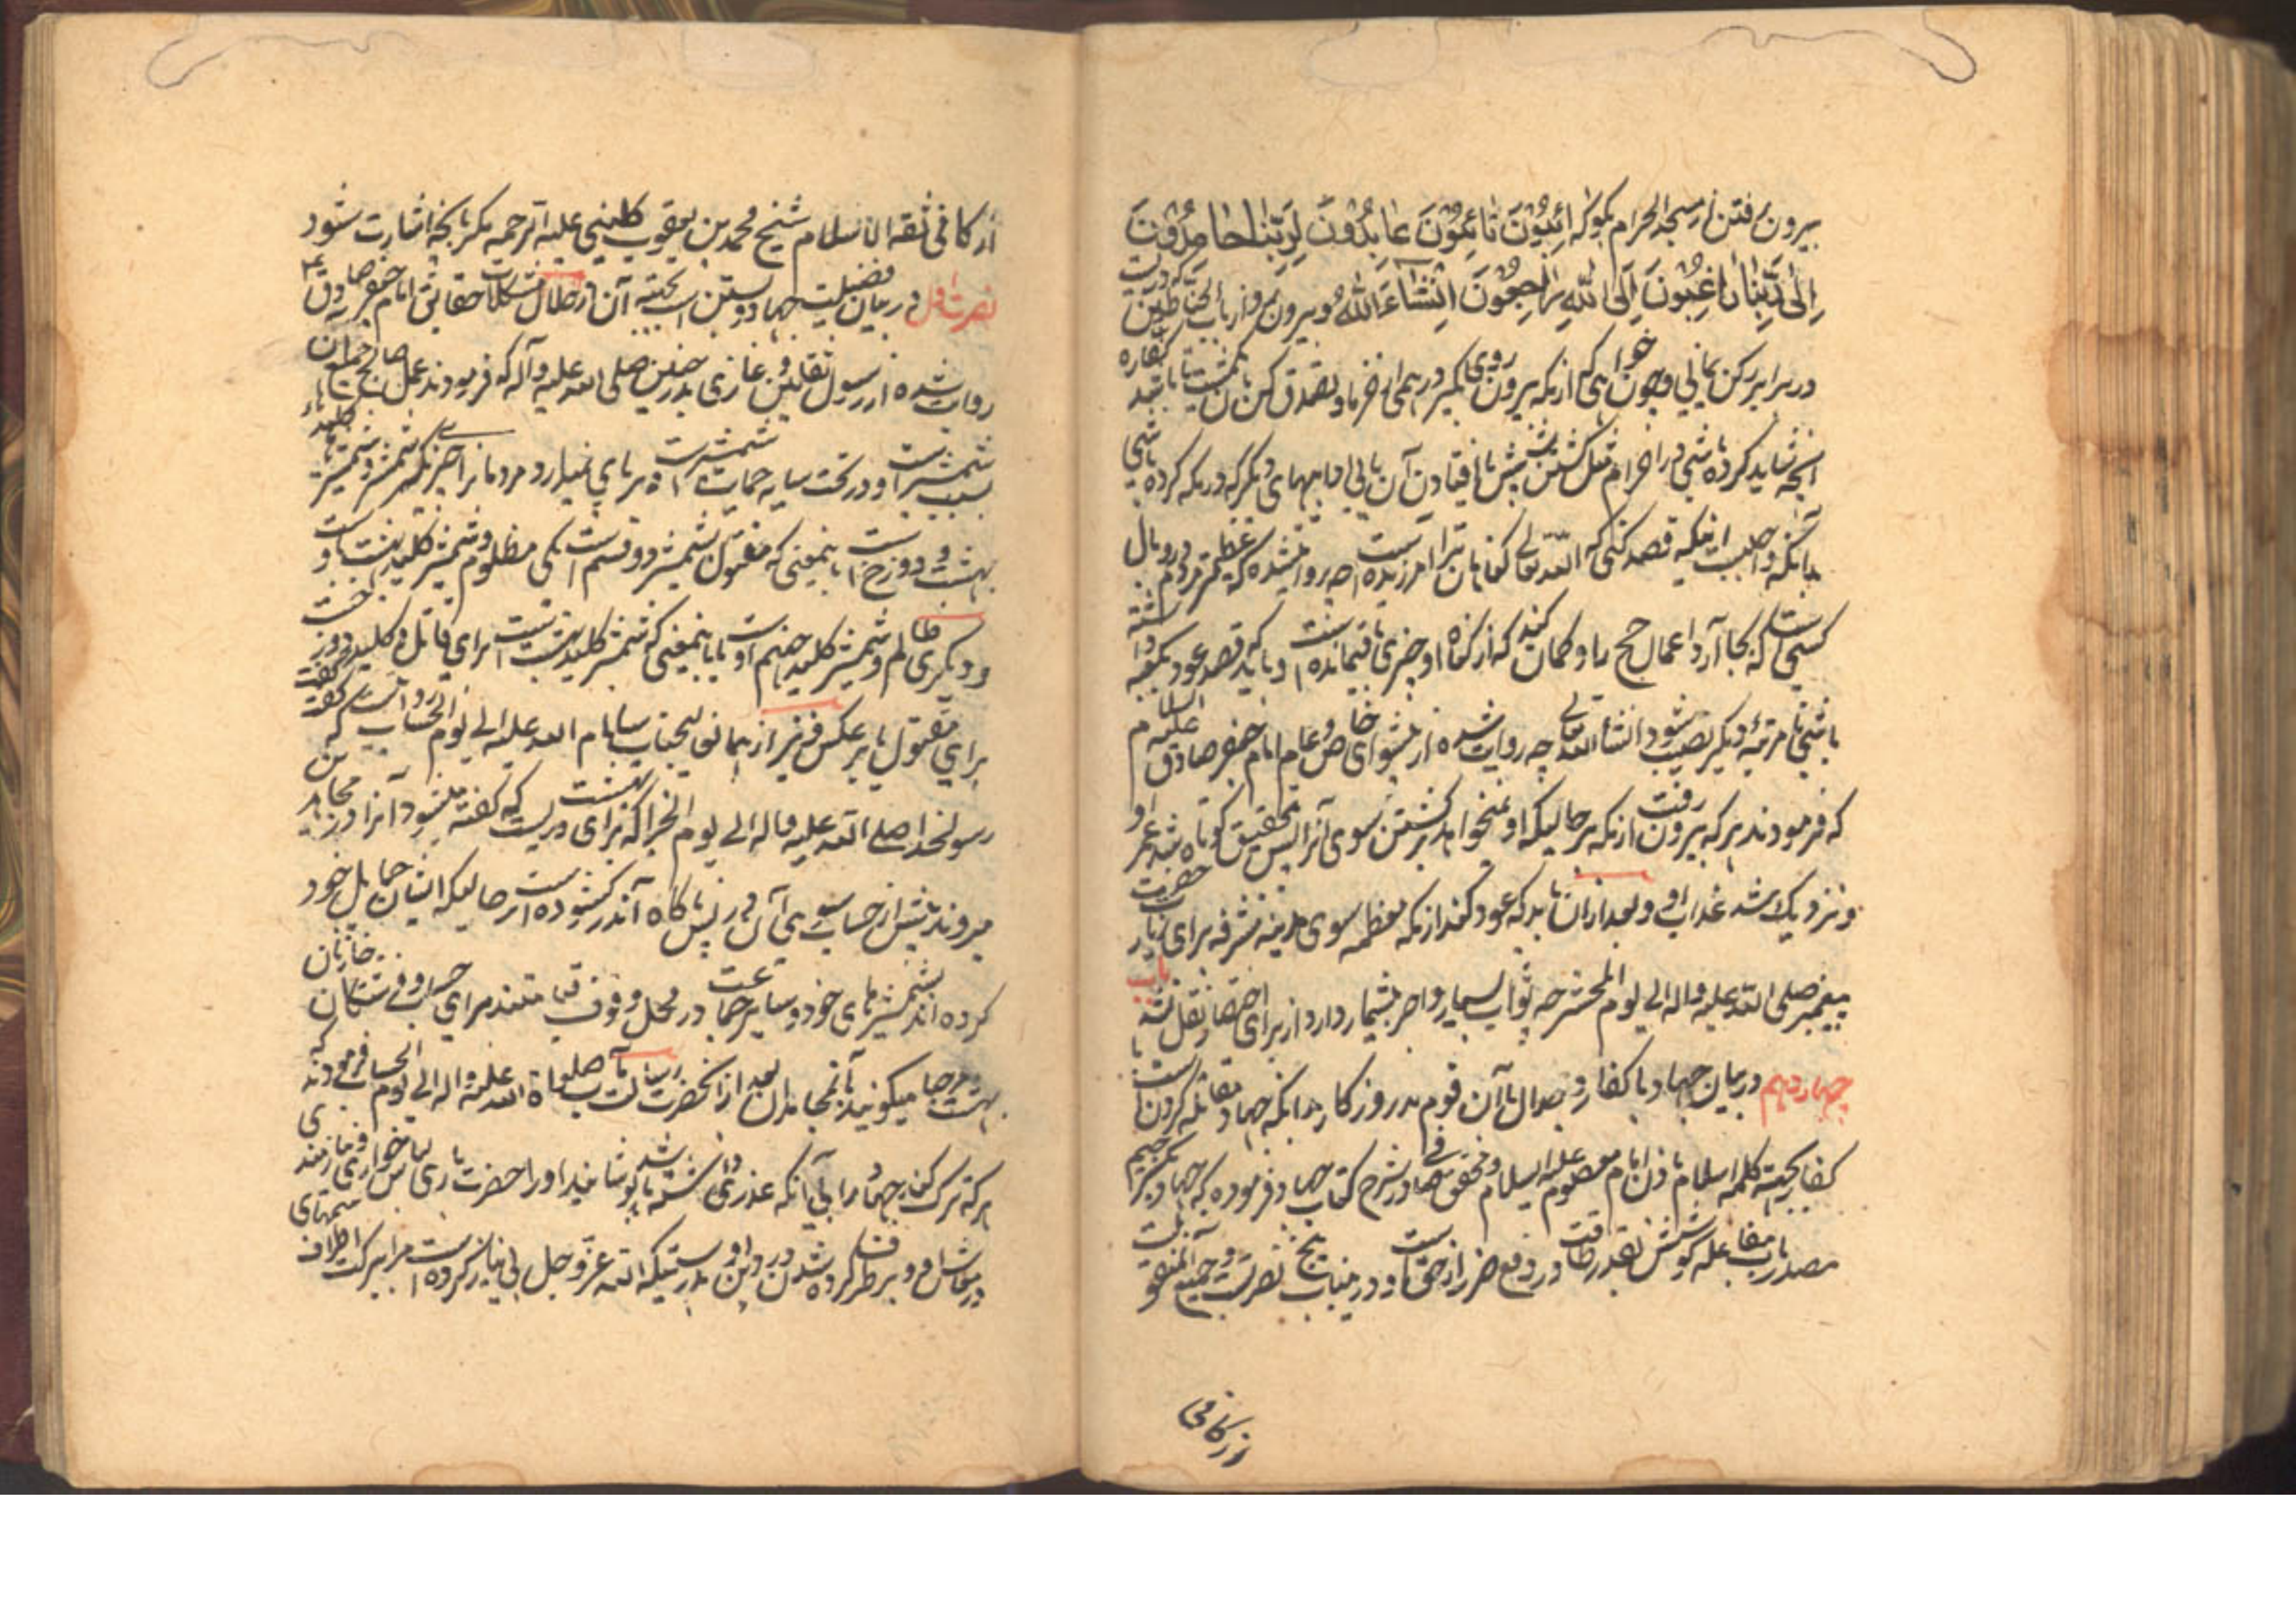 بیرون رفتن از مسجد الحرام بگو که آئِبُوْنَ تَائِبُوْنَ عَابِدُوْنَ لِرَبِّنَا حَامِدُوْنَ
اِلٰی رَبِّنَا رَاغِبُوْنَ اِلَی اللّٰهِ رَاجِعُوْنَ اِنْشَاءَ اللّٰهُ و بیرون رو از باب الحناطین که در
در برابر رکن یمانی و چون خواهی که از مکه بیرون روی بگیر درهمی خرما و تصدق کن تا کفاره باشد
آنچه شاید کرده باشی در احرام مثل کشتن شپش یا افتادن آن یا بی ادبیهای دیگر که در مکه کرده باشی
بدانکه واجبست اینکه قصد کنی که الله تعالی گناهان ترا آمرزیده است چه روایت شده که عظیمتر مردم در وبال
کسی است که بجا آرد اعمال حج را و گمان کند که از گناه او چیزی باقیمانده است و باید که قصد عود بمکه داشته
باشی تا مرتبهٔ دیگر نصیب شود انشاء الله تعالی چه روایت شده از پیشوای خاص و عام امام جعفر صادق علیه السلام
که فرمودند هر که بیرون رفت از مکه در حالیکه او نمیخواهد برگشتن سوی آنرا پس بتحقیق کوتاه شد عمر او
و نزدیک شد عذاب او و بعد از آن باید که عود کند از مکه معظمه سوی مدینه مشرفه برای زیارت حضرت
پیغمبر صلی الله علیه و اله الی یوم المحشر چه ثواب بسیار و اجر بیشمار دارد از برای اختصار نقل نشد باب
چهاردهم در بیان جهاد با کفار و جدال با آن قوم بد روزگار بدانکه جهاد مقاتله کردن است با
کفار بجهة کلمه اسلام باذن امام معصوم علیه السلام و محقق در شرح کتاب جهاد فرموده که جهاد بکسر جیم
مصدر باب مفاعله کوشش بقدر طاقت در دفع ضرر از حق است و در این باب پنج نصرتست و جمیع آن منقول
از کافی
از کافی ثقه الاسلام شیخ محمد بن یعقوب کلینی علیه الرحمه مگر بآنچه اشارت شود
نصرت اول در بیان فضیلت جهاد و بستن اسب بجهته آن در حلال مشکلات حقائق امام جعفر صادق ع
روایت شده از رسول ثقلین و غازی بدر و حنین صلی الله علیه و آله که فرمودند عمل صالح جمله آن
بسبب شمشیر است و در تحت سایه حمایت شمشیر است و بر پای نمیدارد مردمانرا چیزی مگر شمشیر و شمشیرها کلیدهاء
بهشت و دوزخ است باینمعنی که مقتول شمشیر دو قسم است یکی مظلوم و شمشیر کلید بهشت او است
و دیگری ظالم و شمشیر کلید جهنم اوست یا باینمعنی که شمشیر کلید بهشت است برای قاتل و کلید دوزخ است
برای مقتول یا بر عکس و نیز از همان عالیجناب سلام الله علیه الی یوم الحساب روایت است که گفت
رسول خدا صلی الله علیه و اله الی یوم الجزا که برای بهشت دریست که گفته میشود آنرا در مجاهدین
میروند پیش از حساب سوی آن در پس ناگاه آندر کشوده است در حالیکه ایشان حمایل خود
کرده اند شمشیرهای خود و سایر جماعت در محل وقوف قیامتند برای حساب و فرشتگان خازنان
بهشت مرحبا میگویند بآنمجاهدان بعد از آن حضرت رسالت مآب صلواة الله علیه و اله الی یوم الحساب فرمودند که
هر که ترک کند جهاد را بی آنکه عذری داشته باشد پوشانید او را حضرت باری لباس خواری و نیازمندی
در معاش او و برطرف کرده شدن دین او بدرستیکه الله عز و جل بی نیاز کرده است مر ببرکت سمهای اطراف